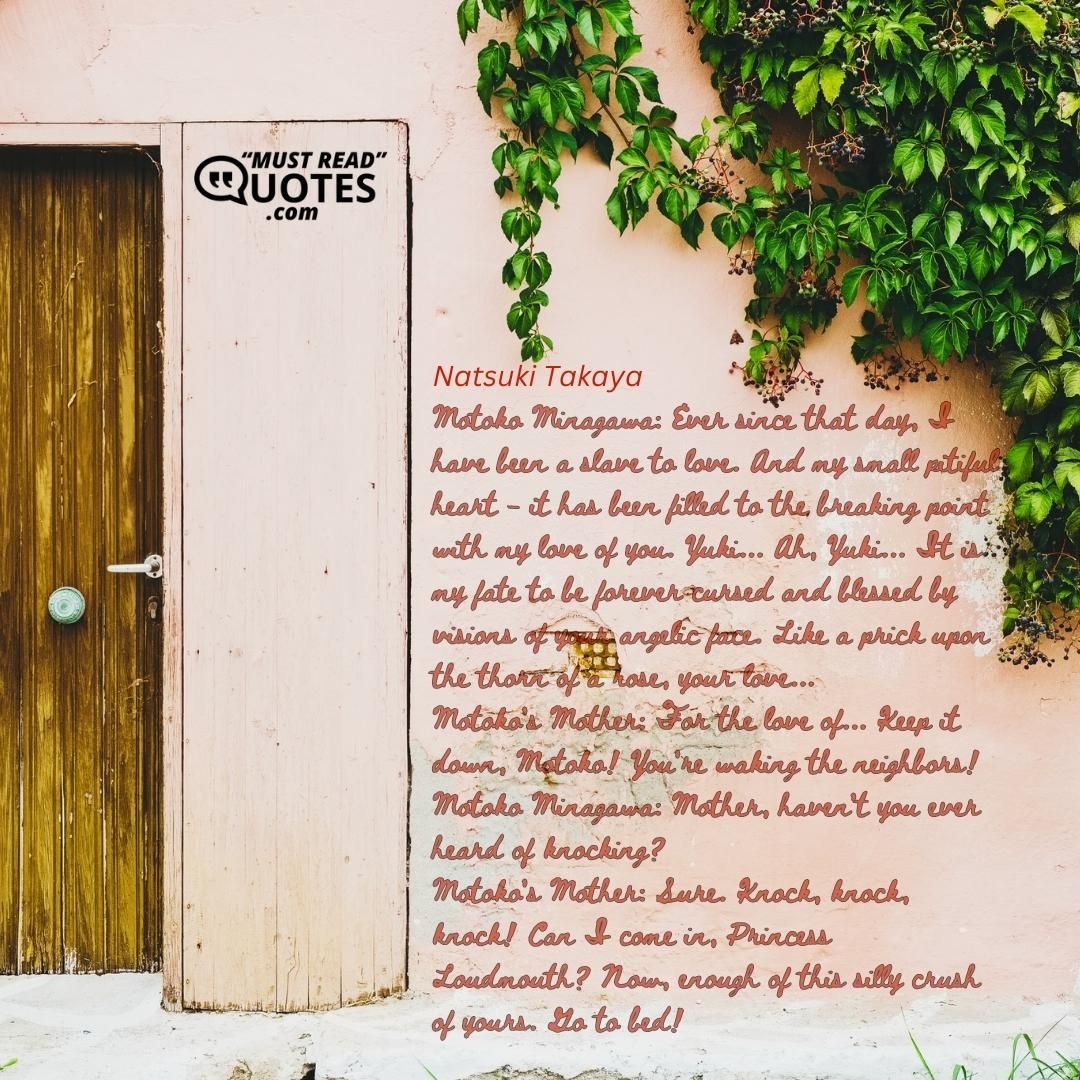 "MUST READ"
QUOTES
.com
Natsuki Takaya
Motoko Minagawa: Ever since that day, I
have been a slave to love. And my small pitiful
heart – it has been filled to the breaking point
with my love of you. Yuki... Ah, Yuki... It is...
my fate to be forever cursed and blessed by
visions of your angelic face. Like a prick upon
the thorn of a rose, your love...
Motoko's Mother: For the love of... Keep it
down, Motoko! You're waking the neighbors!
Motoko Minagawa: Mother, haven't you ever
heard of knocking?
Motoko's Mother: Sure. Knock, knock,
knock! Can I come in, Princess
Loudmouth? Now, enough of this silly crush
of yours. Go to bed!